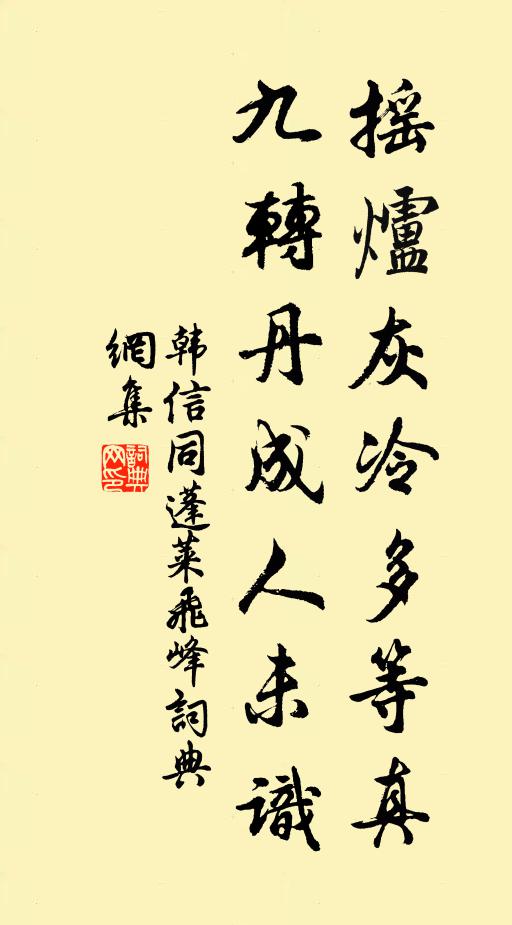 搖爐灰冷多等真
九轉丹成人未識
韩信同蓬莱飛峰詞典
網集
詞典網印